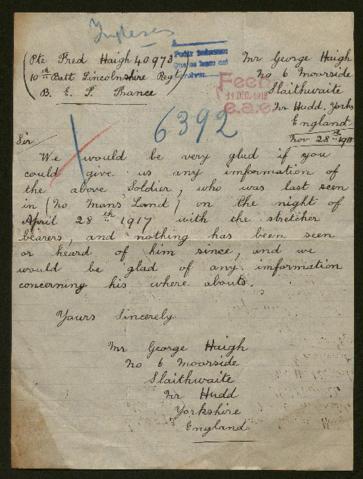 Ingleses
(Pte Fred Haigh 40973
10th Batt Lincolnshire Regt
B. E. F. France
Mr George Haigh
No 6 Moorside
Slaithwaite
Nr Hudd. Yorks
England
Nov 28th
6392
Sir
We would be very glad if you
could give us any information of
the above soldier, who was last seen
in (No Mans Land) on the night of
April 28th 1917 with the stretcher
bearers, and nothing has been seen
or heard of him since, and we
would be glad of any information
concerning his where abouts.
Yours Sincerely
Mr George Haigh
No 6 Moorside
Slaithwaite
Nr Hudd
Yorkshire
England